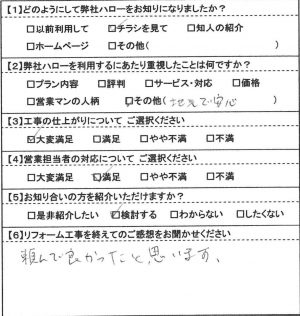 【1】どのようにして弊社ハローをお知りになりましたか?
□以前利用して ☑チラシを見て □知人の紹介
□ホームページ □その他( )
【2】弊社ハローを利用するにあたり重視したことは何ですか?
□プラン内容 □評判 □サービス・対応 □価格
□営業マンの人柄 ☑その他(地元で安心)
【3】工事の仕上がりについて ご選択ください
☑大変満足 □満足 □やや不満 □不満
【4】営業担当者の対応について ご選択ください
□大変満足 ☑満足 □やや不満 □不満
【5】お知り合いの方を紹介いただけますか?
□是非紹介したい ☑検討する □わからない □したくない
【6】リフォーム工事を終えてのご感想をお聞かせください
頼んで良かったと思います。